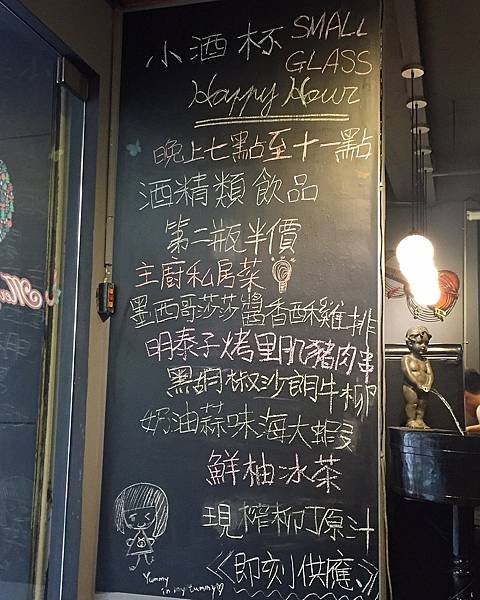 小酒杯 SMALL
GLASS
Happy Hour
晚上七點至十一點
酒精類飲品
第二瓶半價
主廚私房菜
墨西哥莎莎醬香酥雞排
明泰子烤里肌豬肉串
黑胡椒沙朗牛柳
奶油蒜味海大蝦
鮮柚冰茶
現榨柳丁原汁
《即刻供應》
Yummy
in my tummy